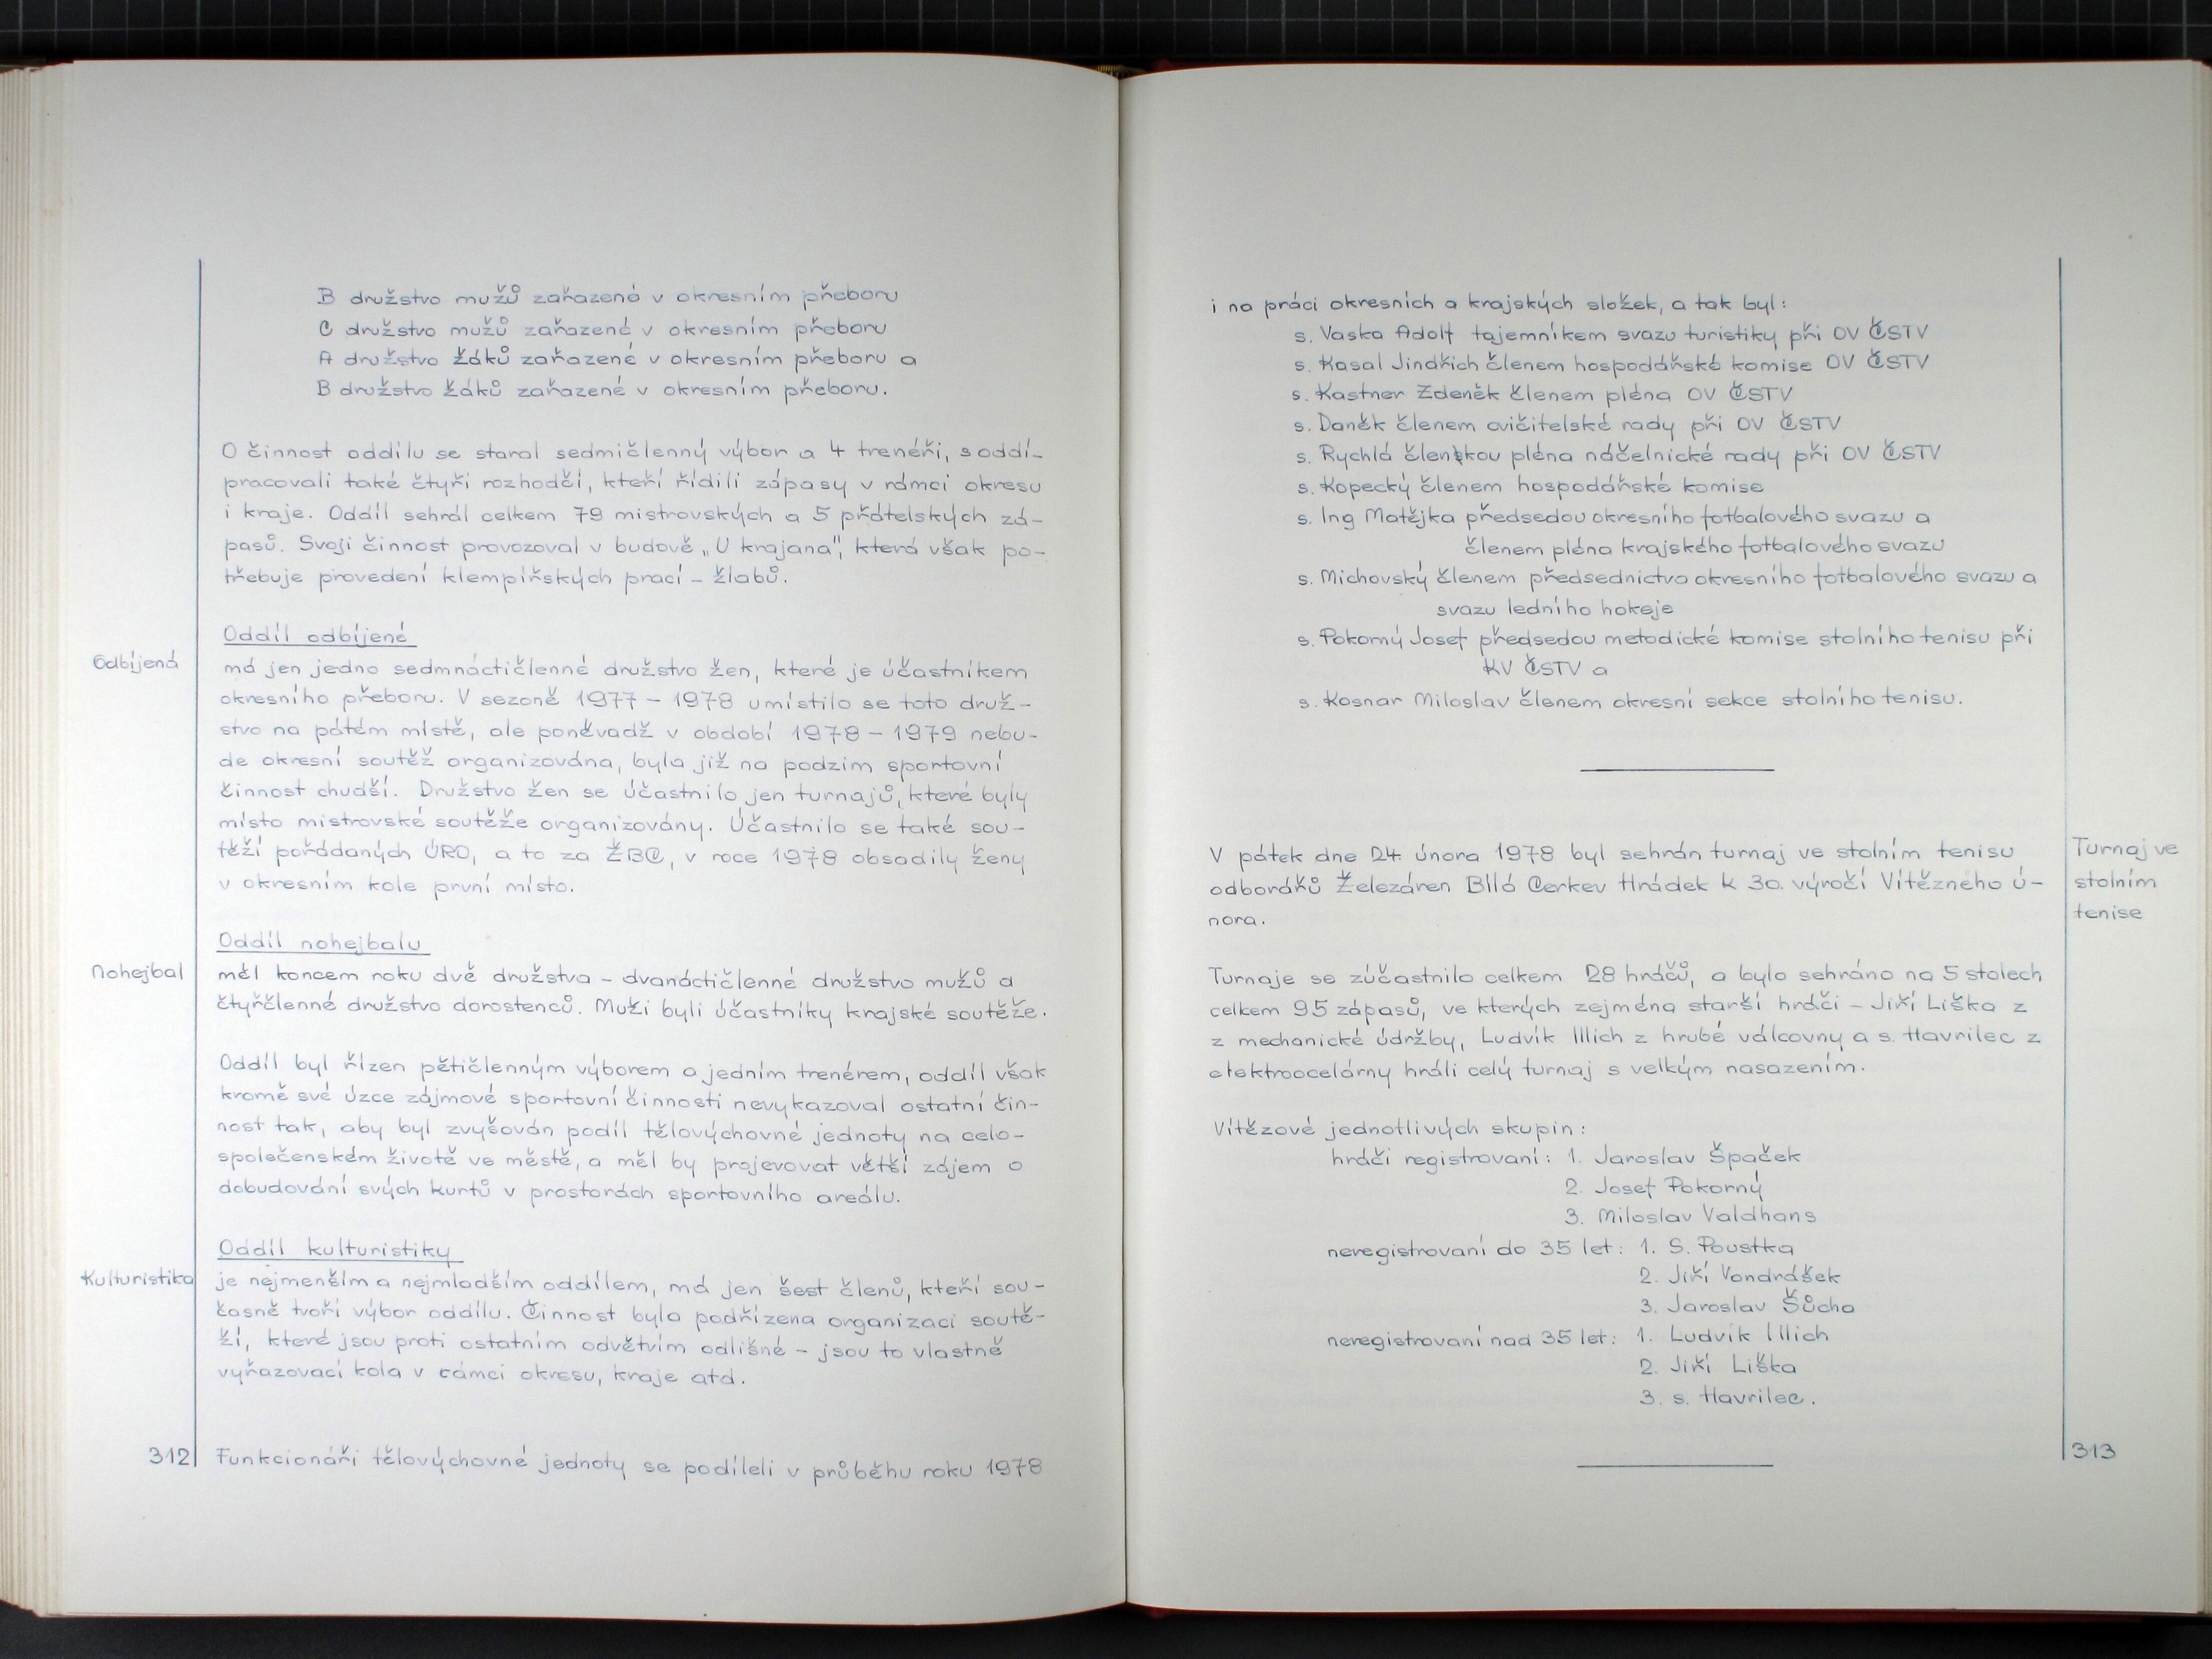 B družstvo mužů zařazené v okresním přeboru
C družstvo mužů zařazené v okresním přeboru
A družstvo žáků zařazené v okresním přeboru a
B družstvo žáků zařazené v okresním přeboru.
O činnost oddílu se staral sedmičlenný výbor a 4 trenéři, s oddí-
pracovali také čtyři rozhodčí, kteří řídili zápasy v rámci okresu
i kraje. Oddíl sehrál celkem 79 mistrovských a 5 přátelských zá-
pasů. Svoji činnost provozoval v budově „U krajana", která však po-
třebuje provedení klempířských prací – žlabů.
Oddíl odbíjené
Odbíjená
má jen jedno sedmnáctičlenné družstvo žen, které je účastníkem
okresního přeboru. V sezoně 1977 – 1978 umístilo se toto druž-
stvo na pátém místě, ale poněvadž v období 1978 – 1979 nebu-
de okresní soutěž organizována, byla již na podzim sportovní
činnost chudší. Družstvo žen se účastnilo jen turnajů, které byly
místo mistrovské soutěže organizovány. Účastnilo se také sou-
těží pořádaných ÚRO, a to za ŽBC, v roce 1978 obsadily ženy
v okresním kole první místo.
Oddíl nohejbalu
Nohejbal
měl koncem roku dvě družstva – dvanáctičlenné družstvo mužů a
čtyřčlenné družstvo dorostenců. Muži byli účastníky krajské soutěže.
Oddíl byl řízen pětičlenným výborem a jedním trenérem, oddíl však
kromě své úzce zájmové sportovní činnosti nevykazoval ostatní čin-
nost tak, aby byl zvyšován podíl tělovýchovné jednoty na celo-
společenském životě ve městě, a měl by projevovat větší zájem o
dobudování svých kurtů v prostorách sportovního areálu.
Oddíl kulturistiky
Kulturistika
je nejmenším a nejmladším oddílem, má jen šest členů, kteří sou-
časně tvoří výbor oddílu. Činnost byla podřízena organizaci soutě-
ží, které jsou proti ostatním odvětvím odlišné – jsou to vlastně
vyřazovací kola v rámci okresu, kraje atd.
312
Funkcionáři tělovýchovné jednoty se podíleli v průběhu roku 1978
i na práci okresních a krajských složek, a tak byl:
s. Vaska Adolf tajemníkem svazu turistiky při OV ČSTV
s. Kasal Jindřich členem hospodářské komise OV ČSTV
s. Kastner Zdeněk členem pléna OV ČSTV
s. Daněk členem cvičitelské rady při OV ČSTV
s. Rychlá členkou pléna náčelnické rady při OV ČSTV
s. Kopecký členem hospodářské komise
s. Ing Matějka předsedou okresního fotbalového svazu a
členem pléna krajského fotbalového svazu
s. Michovský členem předsednictva okresního fotbalového svazu a
svazu ledního hokeje
s. Pokorný Josef předsedou metodické komise stolního tenisu při
KV ČSTV a
s. Kosnar Miloslav členem okresní sekce stolního tenisu.
V pátek dne 24 února 1978 byl sehrán turnaj ve stolním tenisu
odborářů Železáren Bílá Cerkev Hrádek k 30. výročí Vítězného ú-
nora.
Turnaj ve
stolním
tenise
Turnaje se zúčastnilo celkem 28 hráčů, a bylo sehráno na 5 stolech
celkem 95 zápasů, ve kterých zejména starší hráči – Jiří Liška z
z mechanické údržby, Ludvík Illich z hrubé válcovny a s. Havrilec z
elektroocelárny hráli celý turnaj s velkým nasazením.
Vítězové jednotlivých skupin:
hráči registrovaní: 1. Jaroslav Špaček
2. Josef Pokorný
3. Miloslav Valdhans
neregistrovaní do 35 let: 1. S. Poustka
2. Jiří Vondrášek
3. Jaroslav Šůcha
neregistrovaní nad 35 let: 1. Ludvík Illich
2. Jiří Liška
3. s. Havrilec.
313